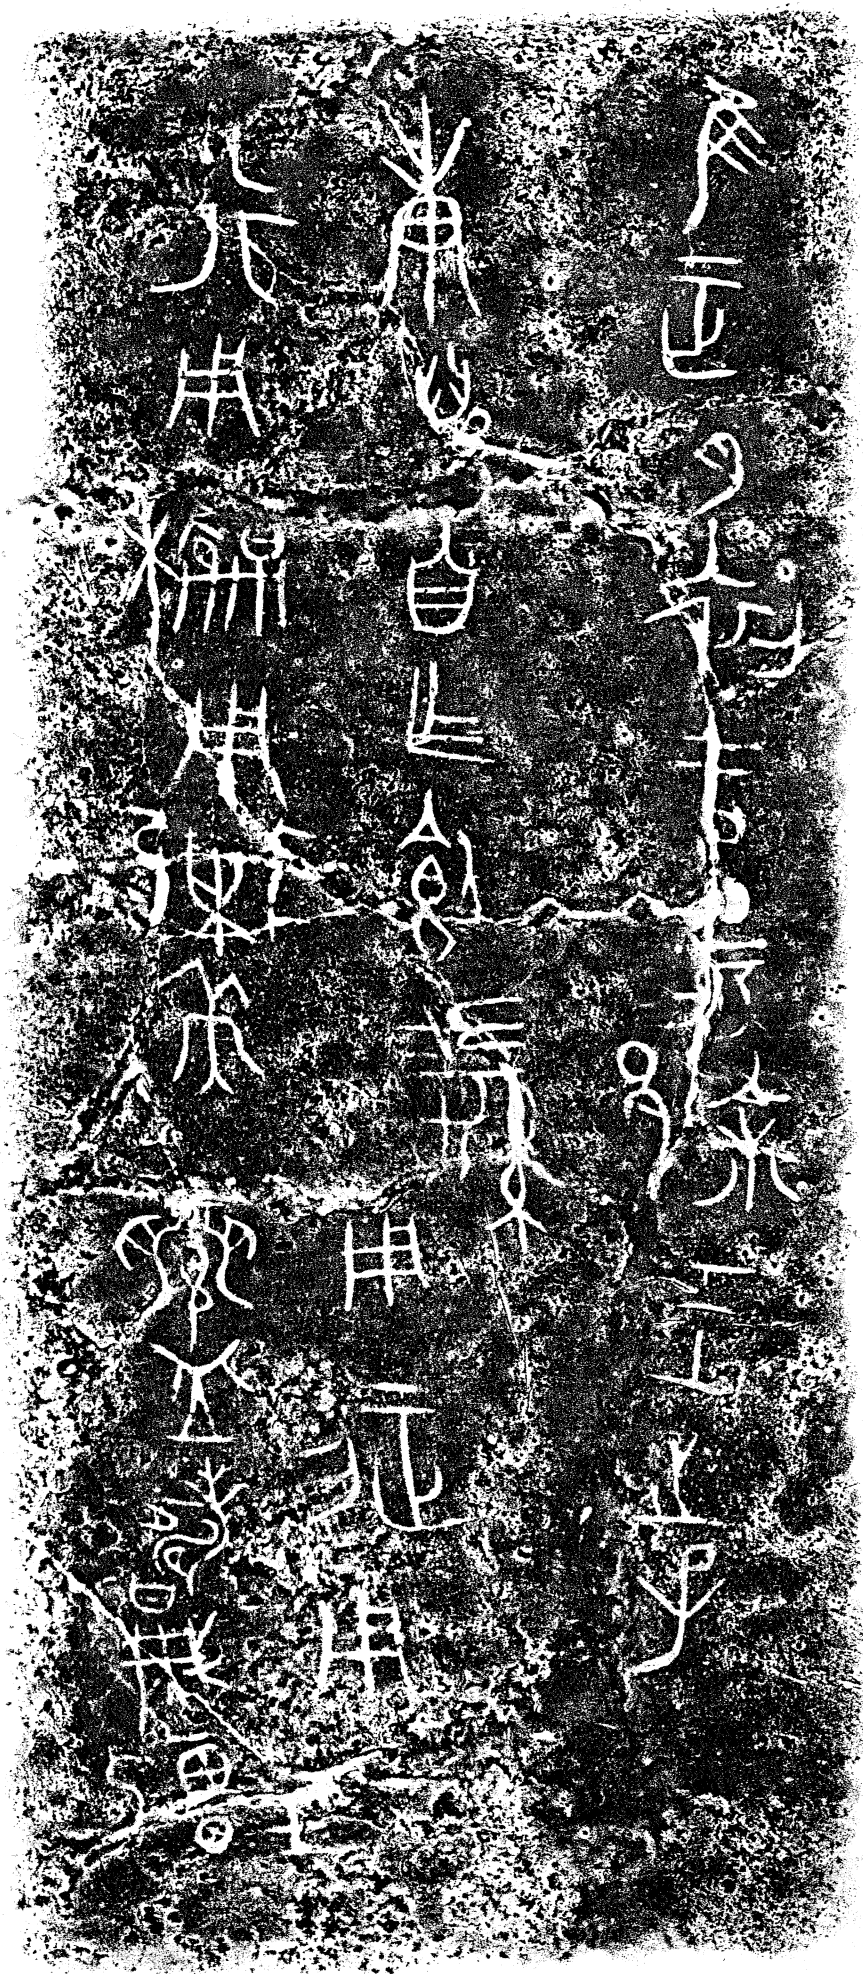 隹正月初吉丁亥䣄王之子
庚兒自乍飤䋣用征用
行用龢用鬻眉壽無疆